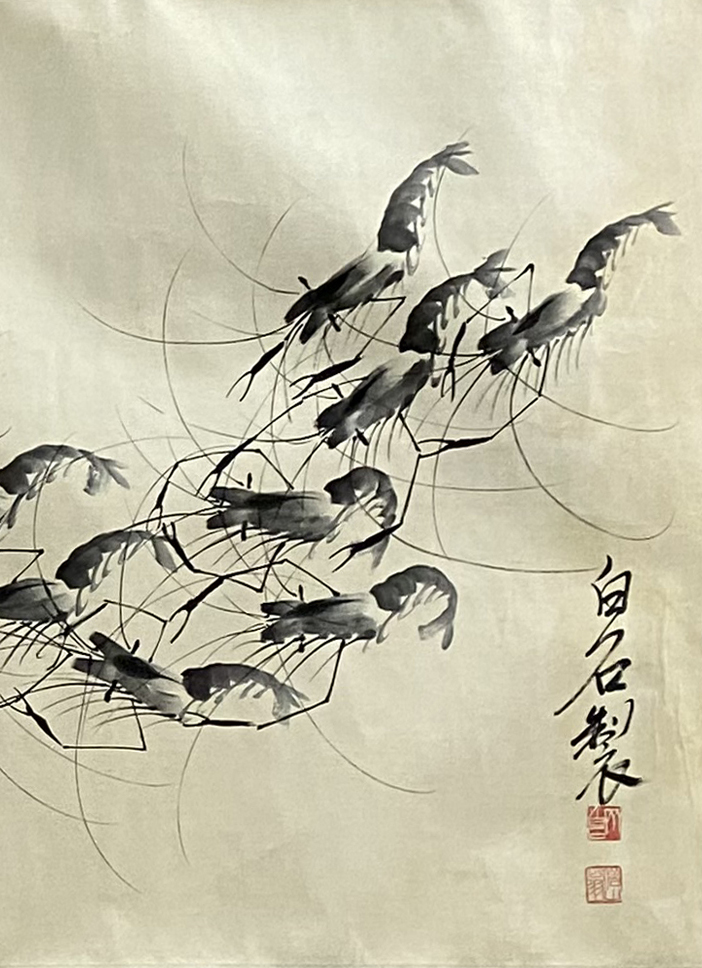 白石製